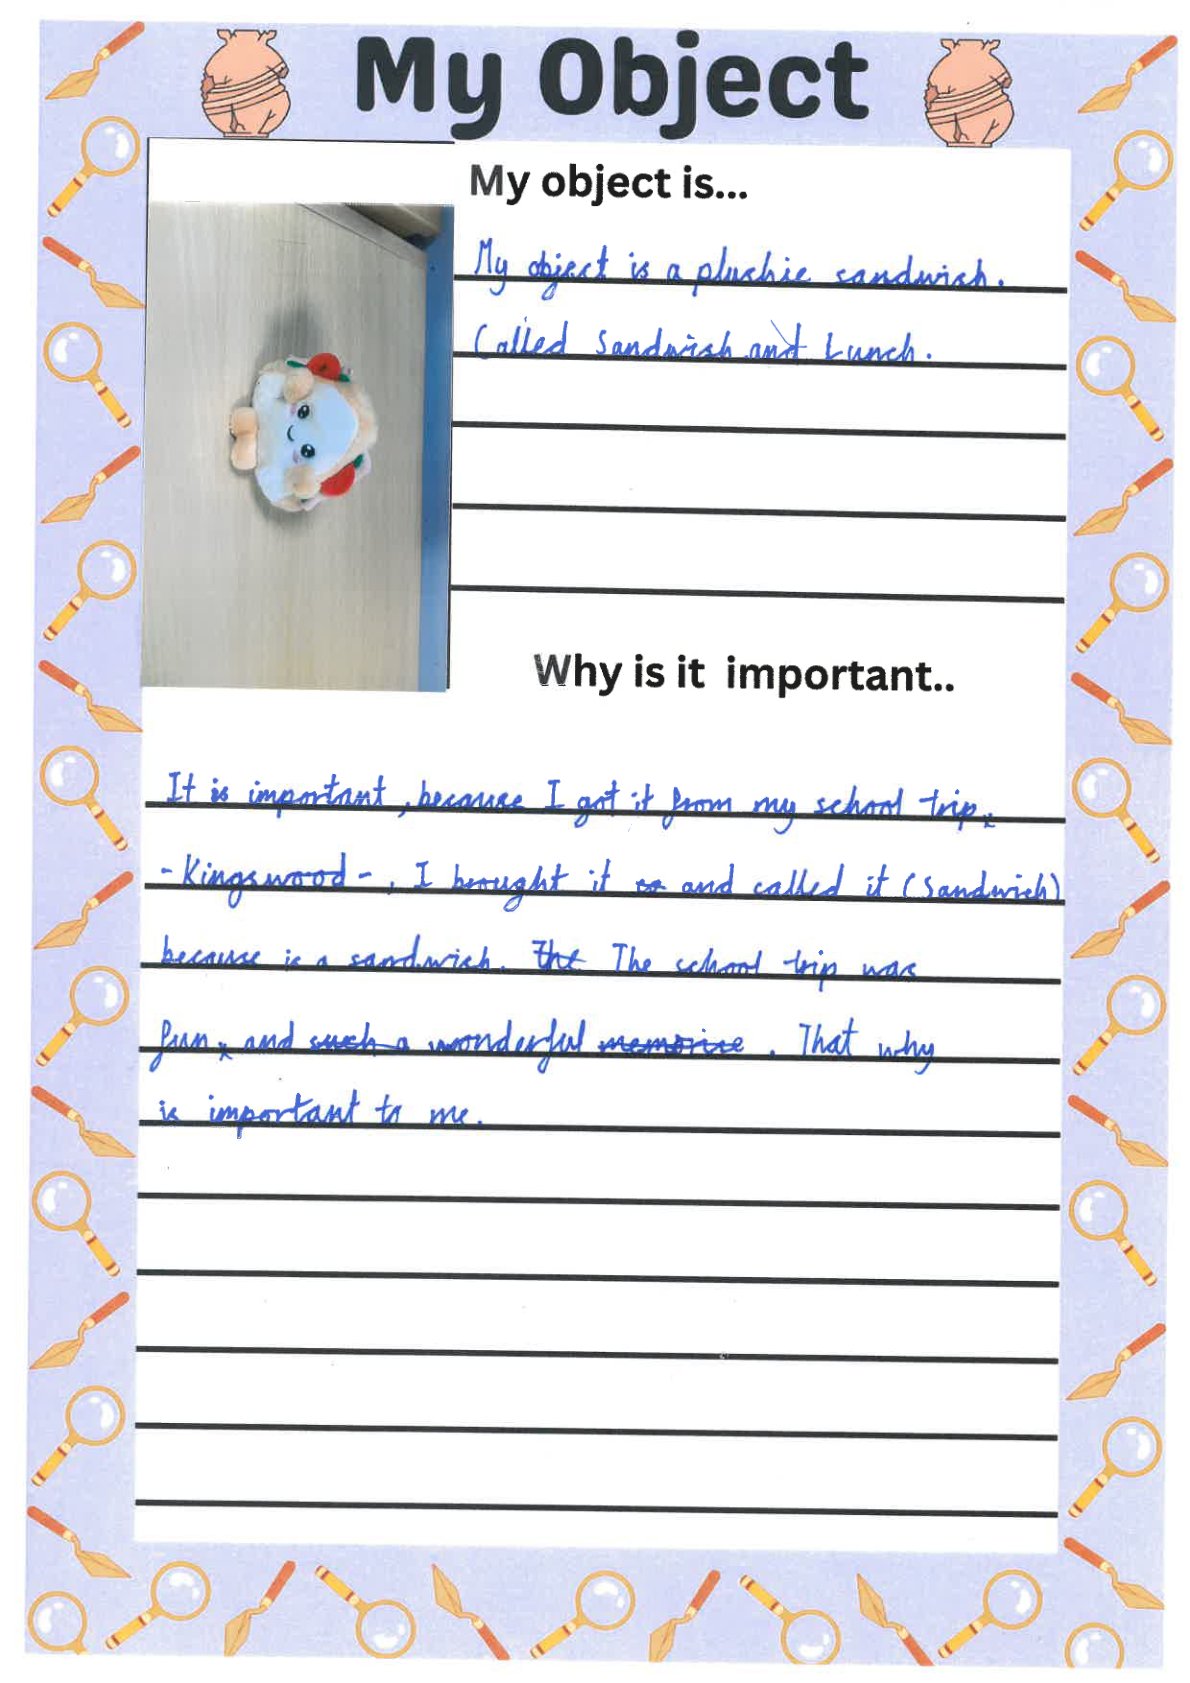 My Object
My object is...
My object is a plushie sandwich.
Called Sandwish and Lunch.
Why is it important..
It is important, because I got it from my school trip
-Kingswood-, I brought it and called it (Sandwich)
because is a sandwich. The The school trip was
fun and such a wonderful memorise. That why
is important to me.